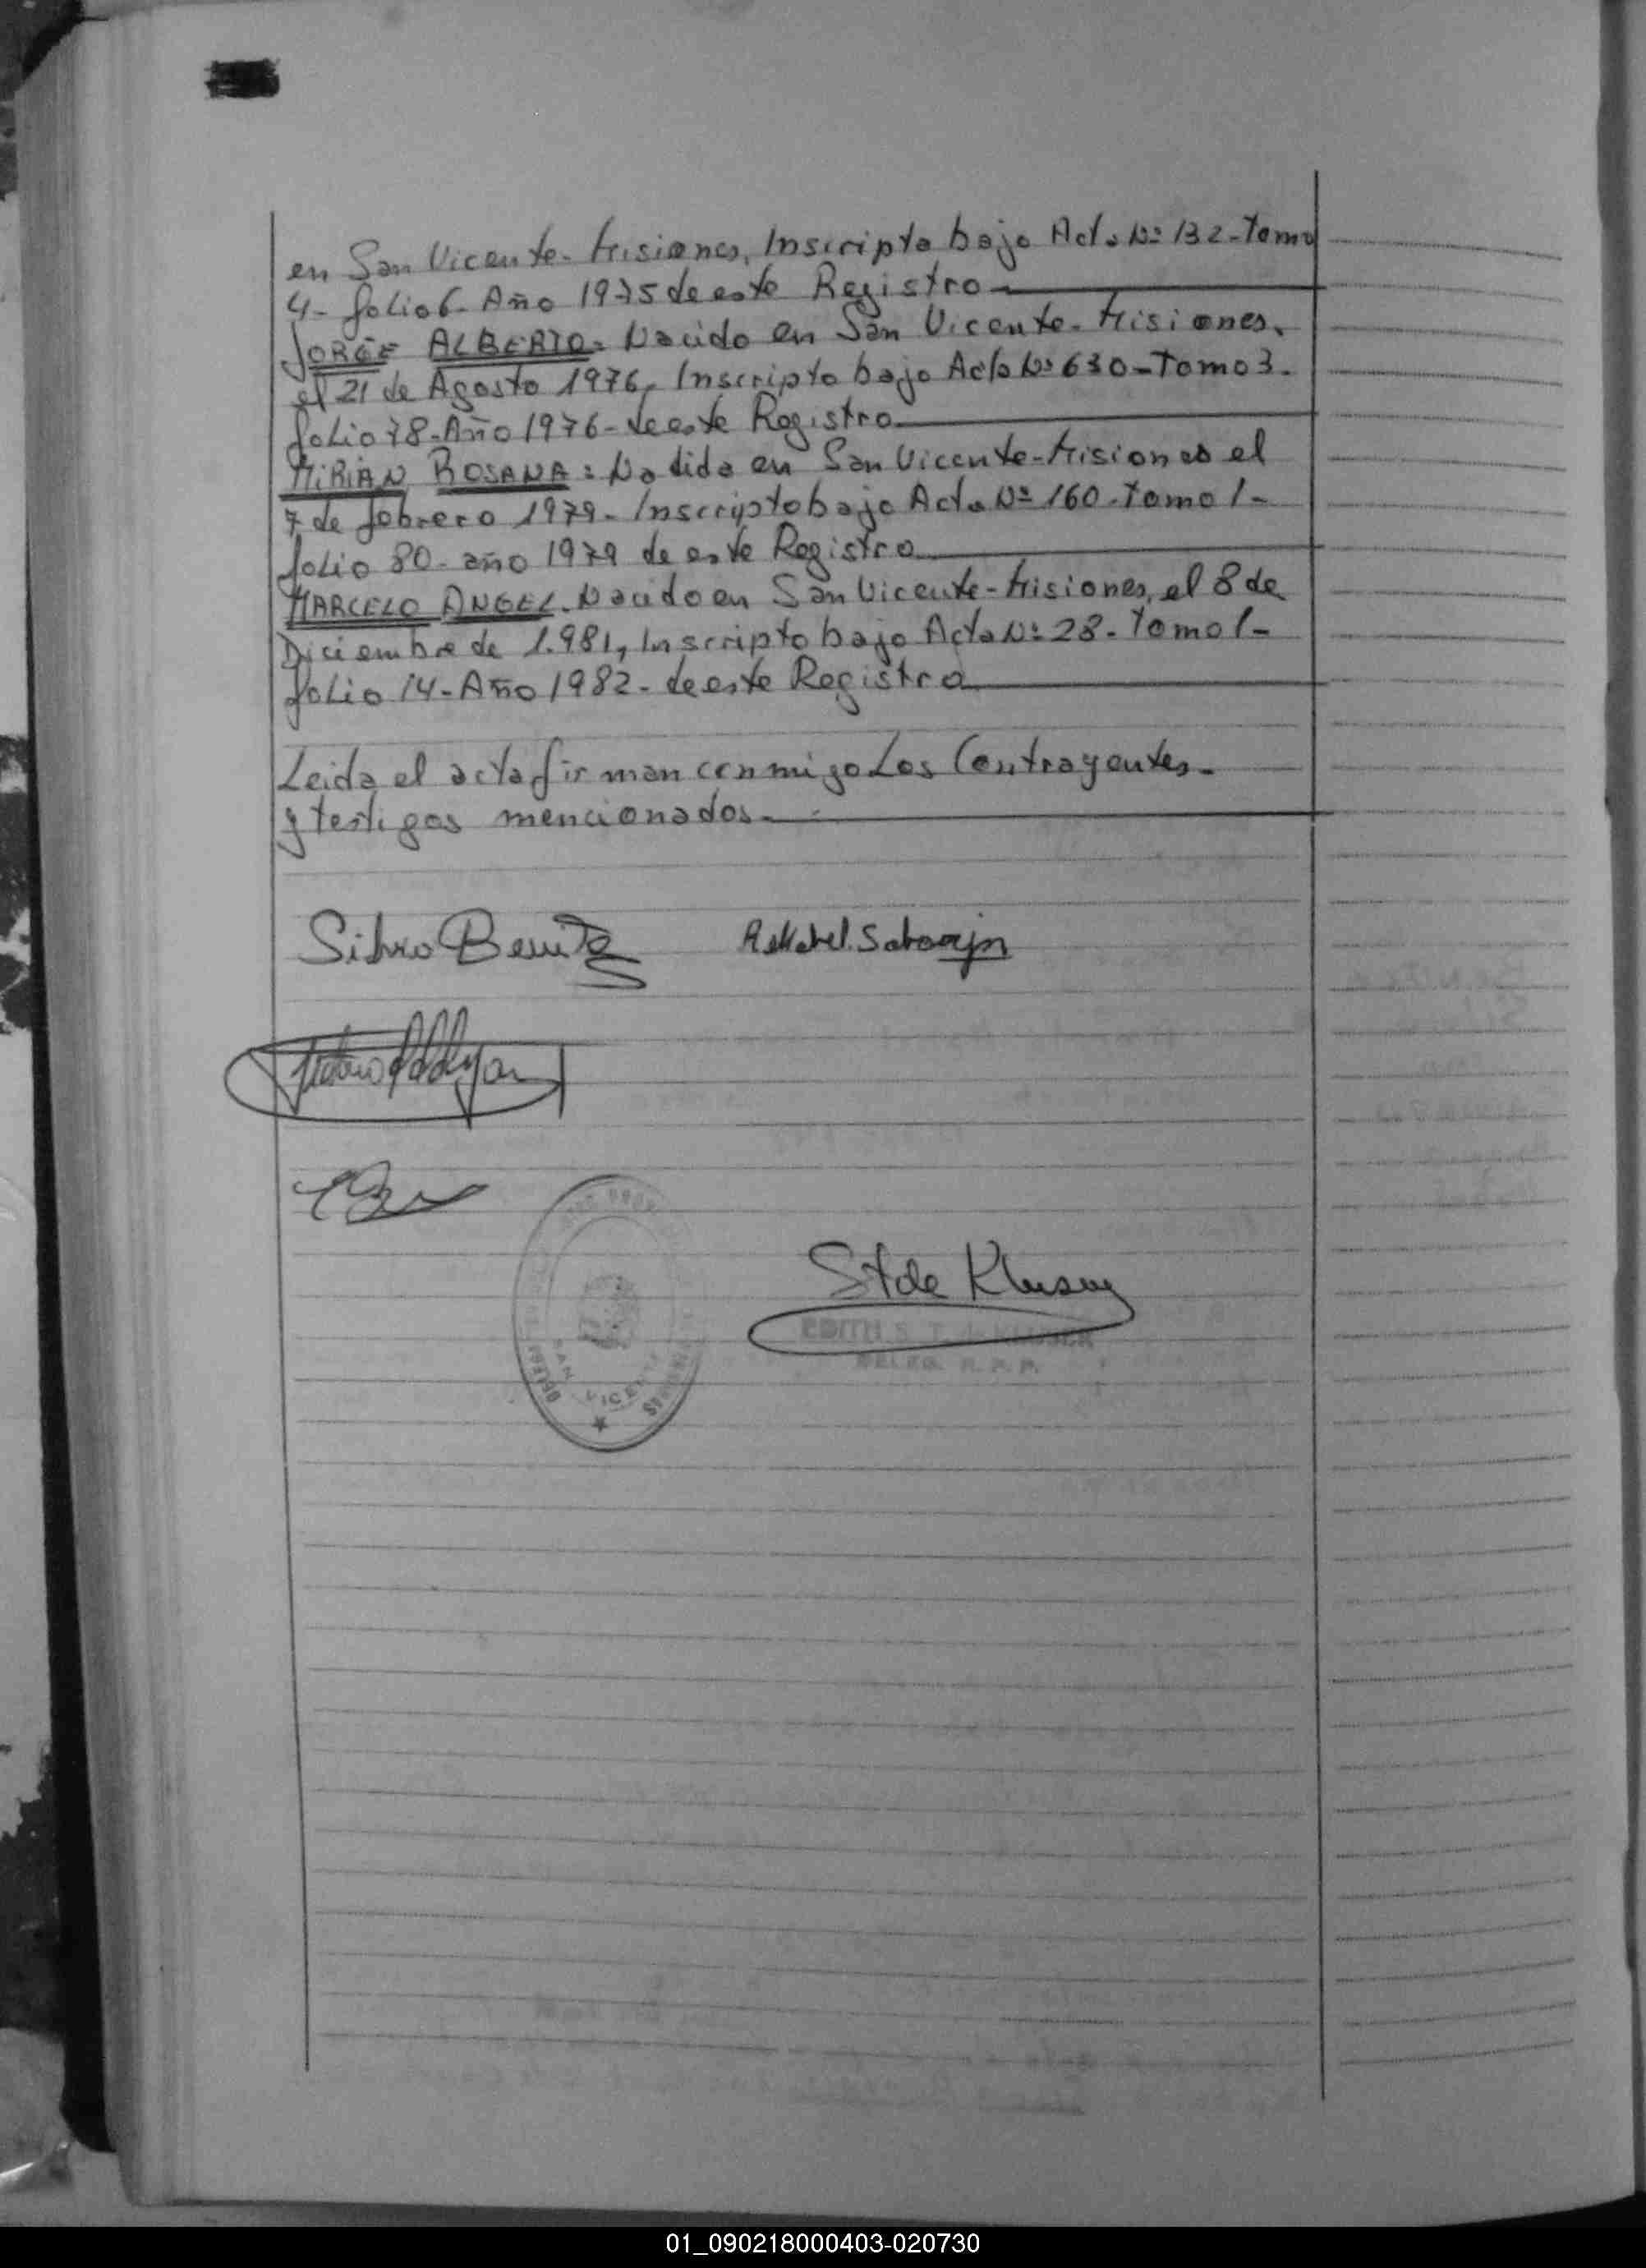 en San Vicente-Misiones, Inscripta bajo Acta Nº 132-Tomo
4- folio 6- Año 1975 de este Registro
JORGE ALBERTO: Nacido en San Vicente-Misiones,
el 21 de Agosto 1976, Inscripto bajo Acta Nº 630-Tomo 3-
folio 78-Año 1976-de este Registro
MIRIAN ROSANA: Nacida en San Vicente-Misiones el
7 de febrero 1979- Inscripto bajo Acta Nº 160-Tomo 1-
folio 80- año 1979 de este Registro
MARCELO ANGEL. Nacido en San Vicente-Misiones, el 8 de
Diciembre de 1.981, Inscripto bajo Acta Nº 28-Tomo 1-
folio 14-Año 1982-de este Registro
Leida el acta firman conmigo Los Contrayentes-
y testigos mencionados-
Silvio Benitez
St de Kluser
EDITH S. T. de KLUSER
DELEG. R. P. P.
SAN VICENTE
01_090218000403-020730